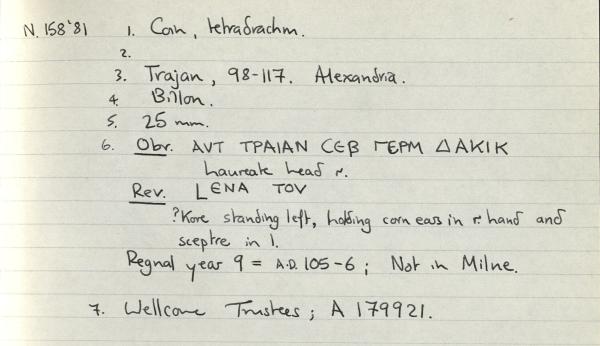 N. 158'81 1. Coin, tetradrachm.
2.
3. Trajan, 98-117. Alexandria.
4. Billon.
5. 25 mm.
6. Obv. ΑVΤ ΤΡΑΙΑΝ СЄΒ ΓЄΡΜ ΔΑΚΙΚ
laureate head r.
Rev. LЄΝΑ ΤΟV
?Kore standing left, holding corn ears in r. hand and
sceptre in l.
Regnal year 9 = A.D. 105-6; Not in Milne.
7. Wellcome Trustees; A 179921.